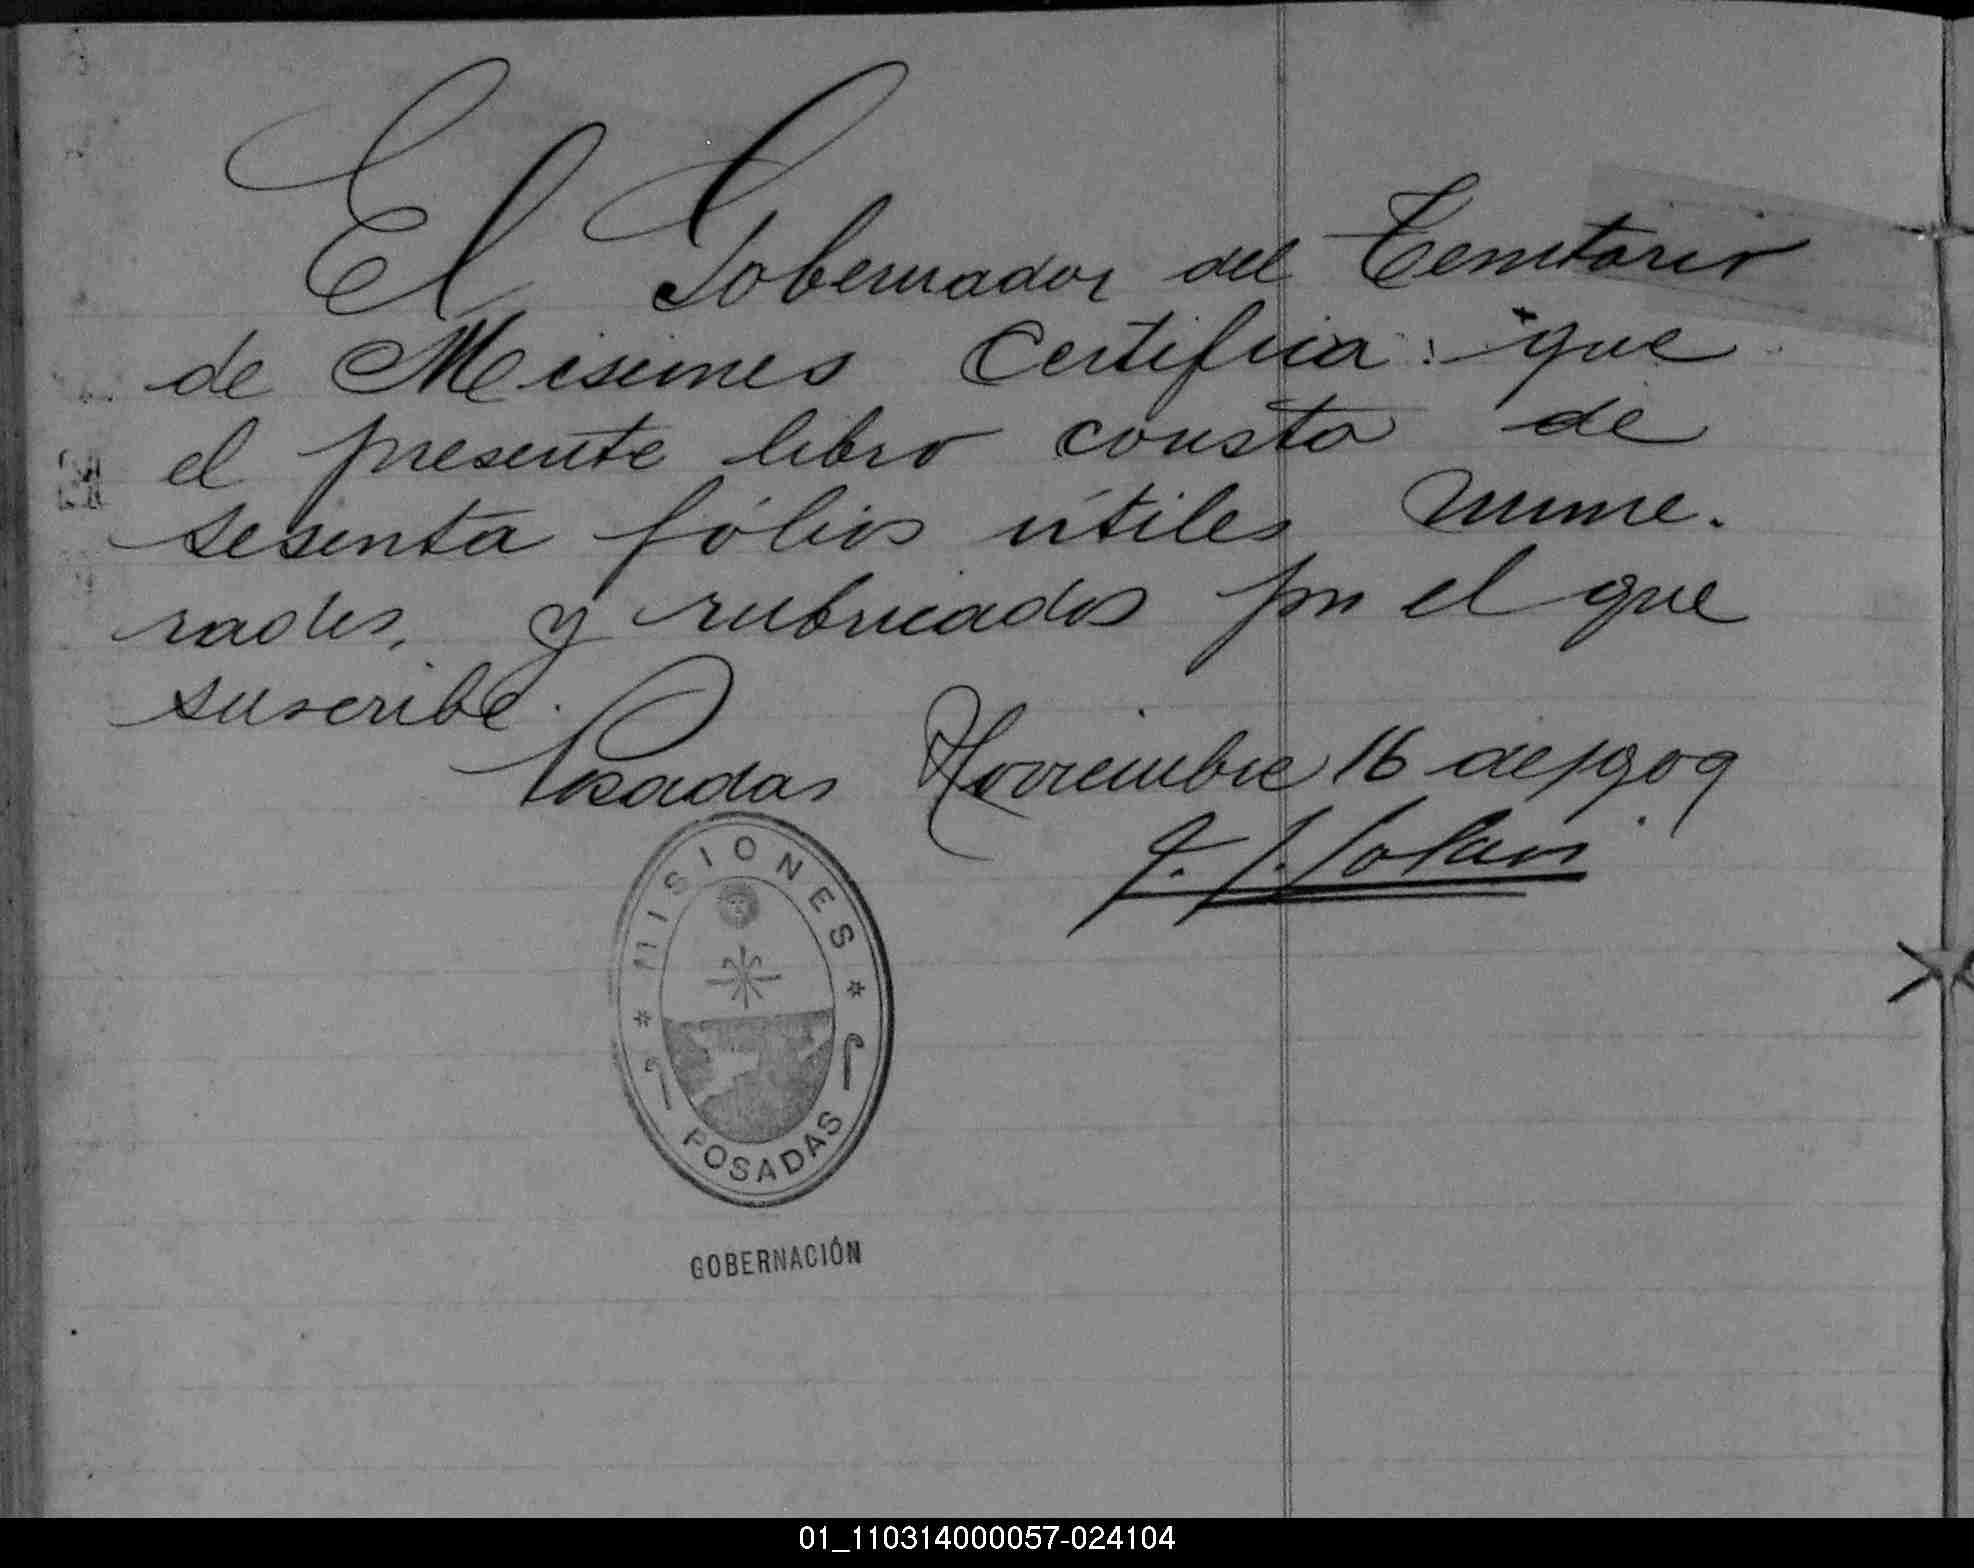 El Gobernador del Territorio
de Misiones Certifica: que
el presente libro consta de
sesenta fólios útiles nume-
rados, y rubricados por el que
suscribe.
Posadas Noviembre 16 de 1909
J. J. Lanusse
MISIONES
POSADAS
GOBERNACIÓN
01_110314000057-024104